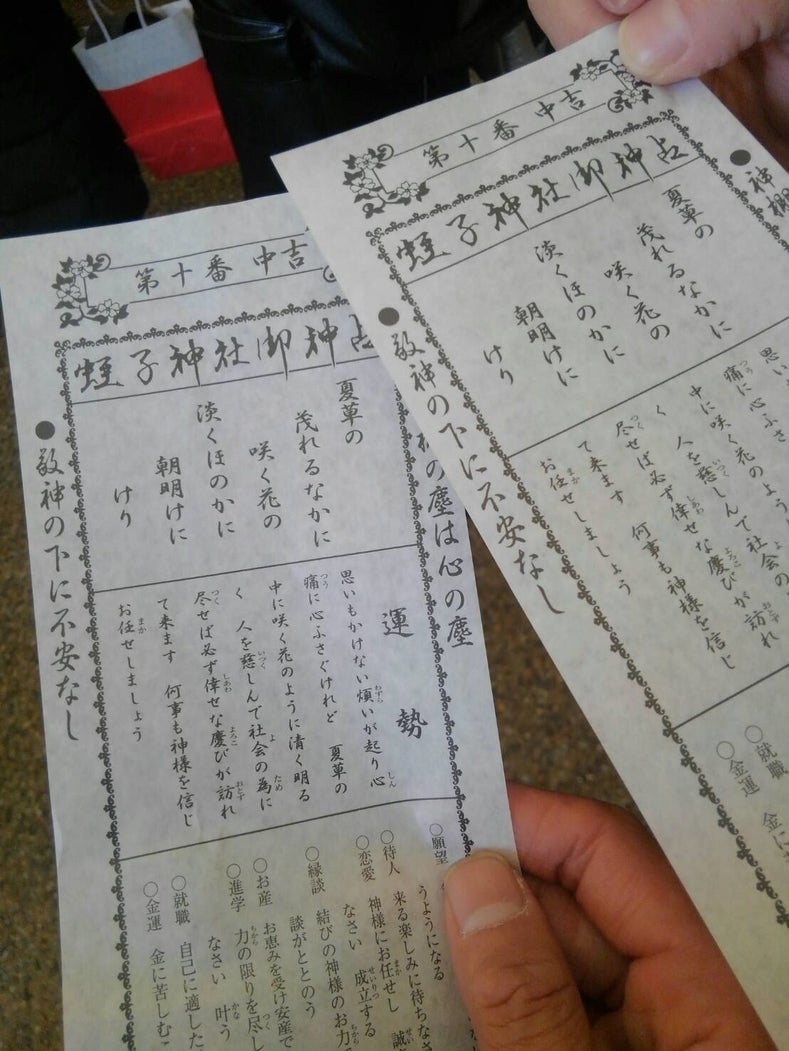 第十番 中吉
蛭子神社御神占
夏草の
茂れるなかに
咲く花の
淡くほのかに
朝明けに
けり
の塵は心の塵
運勢
思いもかけない煩いが起り心
痛に心ふさぐけれど 夏草の
中に咲く花のように清く明る
く 人を慈しんで社会の為に
尽せば必ず倖せな慶びが訪れ
て来ます 何事も神様を信じ
お任せしましょう
○願望
うようになる
○待人 来る楽しみに待ちなさ
○恋愛 神様にお任せし 誠
なさい 成立する
○縁談 結びの神様のお力
談がととのう
○お産 お恵みを受け安産で
○進学 力の限りを尽し
なさい 叶う
○就職 自己に適した
○金運 金に苦しむこ
●敬神の下に不安なし
第十番 中吉
蛭子神社御神占
●神棚
夏草の
茂れるなかに
咲く花の
淡くほのかに
朝明けに
けり
思い
痛に心ふさ
中に咲く花のよう
く 人を慈しんで社会の
尽せば必ず倖せな慶びが訪れ
て来ます 何事も神様を信じ
お任せしましょう
○就職
○金運 金に
●敬神の下に不安なし